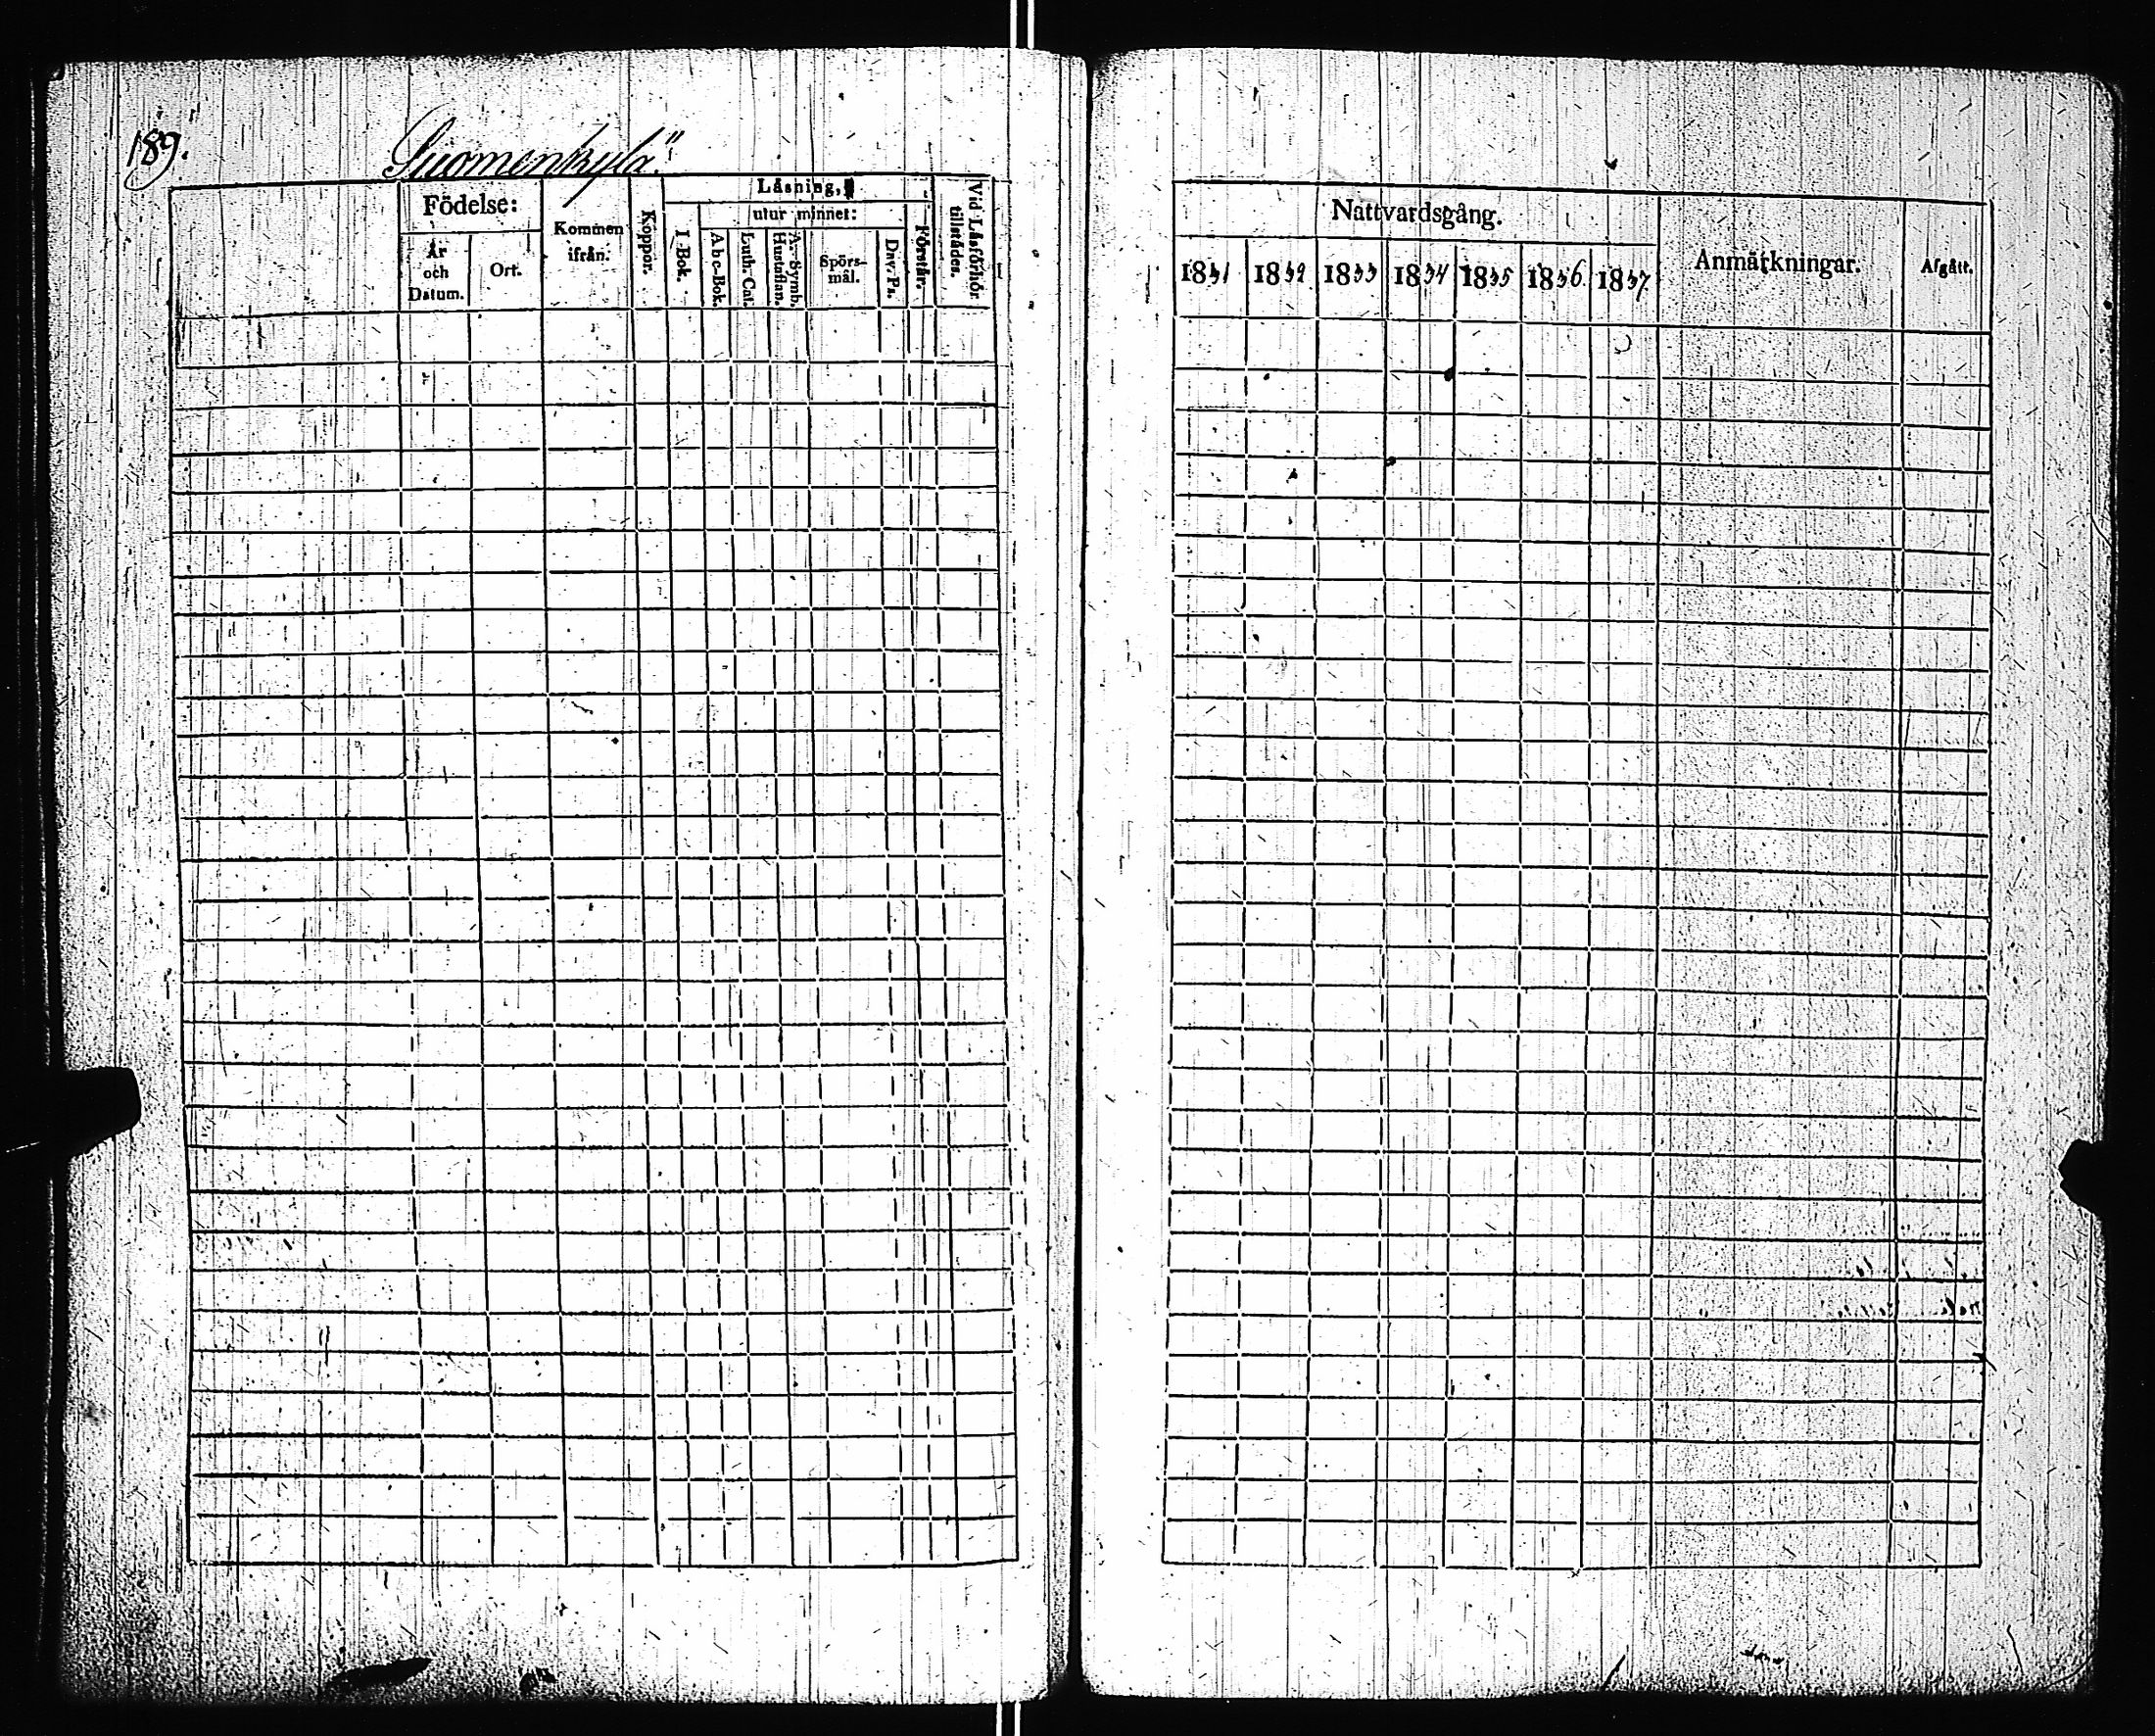 189.
Suomenkylä
Födelse:
År
och
Datum.
Ort.
Kommen
ifrån.
Koppor.
Läsning,
utur minnet:
I Bok.
Abc-Bok.
Luth. Cat.
Hustaflan.
A. Symb.
Spörs-
mål.
Dav. Ps.
Förstår.
Vid Läsförhör
tillstådes.
Nattvardsgång.
1831 1832 1833 1834 1835 1836 1837
Anmärkningar.
Afgått.